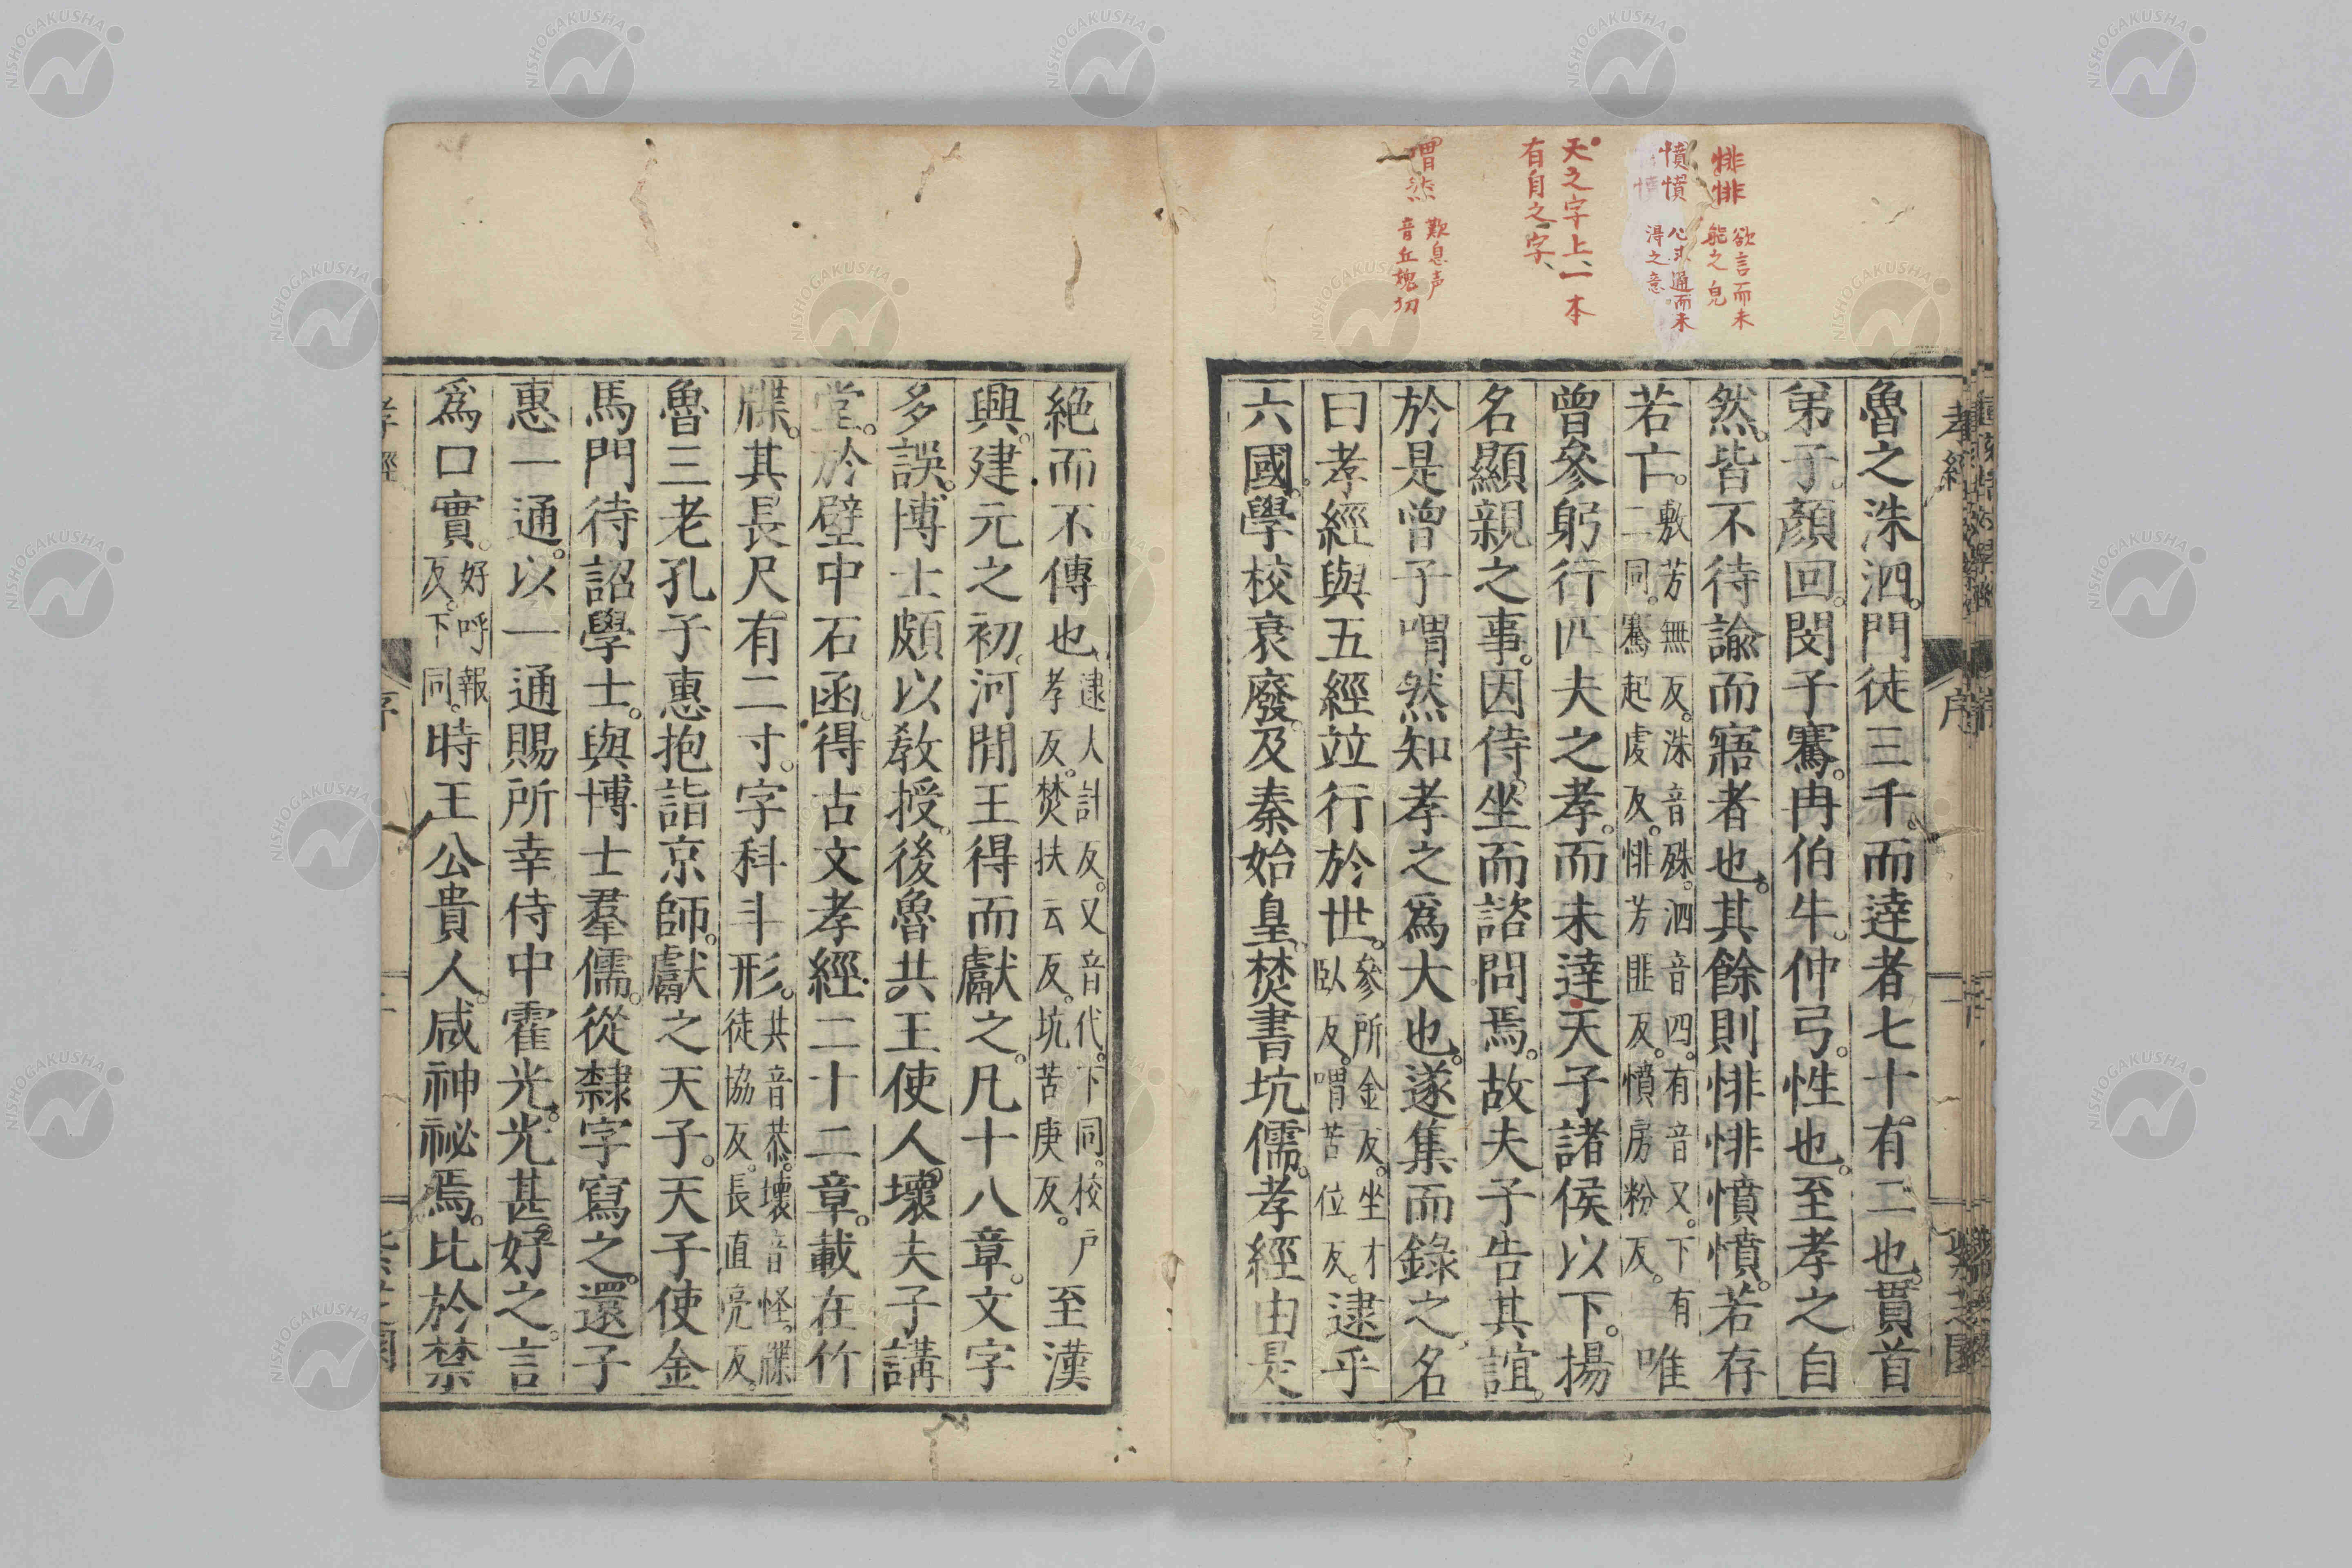 悱悱 欲言而未
能之皃
憤憤 心求通而未
得之意
天之字上一本
有自之字
喟然 歎息声
音丘媿切
孝經
序
魯之洙泗。門徒三千。而達者七十有二也。貫首
弟子。顏回。閔子騫。冉伯牛。仲弓。性也。至孝之自
然。皆不待諭而寤者也。其餘則悱悱憤憤。若存
若亡。敷芳無反。洙音殊。泗音四。有音又。下有
二同。騫起虔反。悱芳匪反。憤房粉反。唯
曾參躬行匹夫之孝。而未達天子諸侯以下。揚
名顯親之事。因侍坐而諮問焉。故夫子告其誼。
於是曾子喟然知孝之爲大也。遂集而錄之。名
曰孝經。與五經竝行於世。參所金反。坐才
臥反。喟苦位反。逮乎
六國。學校衰廢。及秦始皇。焚書坑儒。孝經由是
絶而不傳也。逮人計反。又音代。下同。校戶
孝反。焚扶云反。坑苦庚反。至漢
興。建元之初。河間王得而獻之。凡十八章。文字
多誤。博士頗以教授。後魯共王使人壞夫子講
堂。於壁中石函。得古文孝經二十二章。載在竹
牒。其長尺有二寸。字科斗形。共音恭。壞音怪。牒
徒協反。長直亮反。
魯三老孔子惠抱詣京師。獻之天子。天子使金
馬門待詔學士。與博士羣儒。從隸字寫之。還子
惠一通。以一通賜所幸侍中霍光。光甚好之。言
爲口實。好呼報
反。下同。時王公貴人。咸神祕焉。比於禁